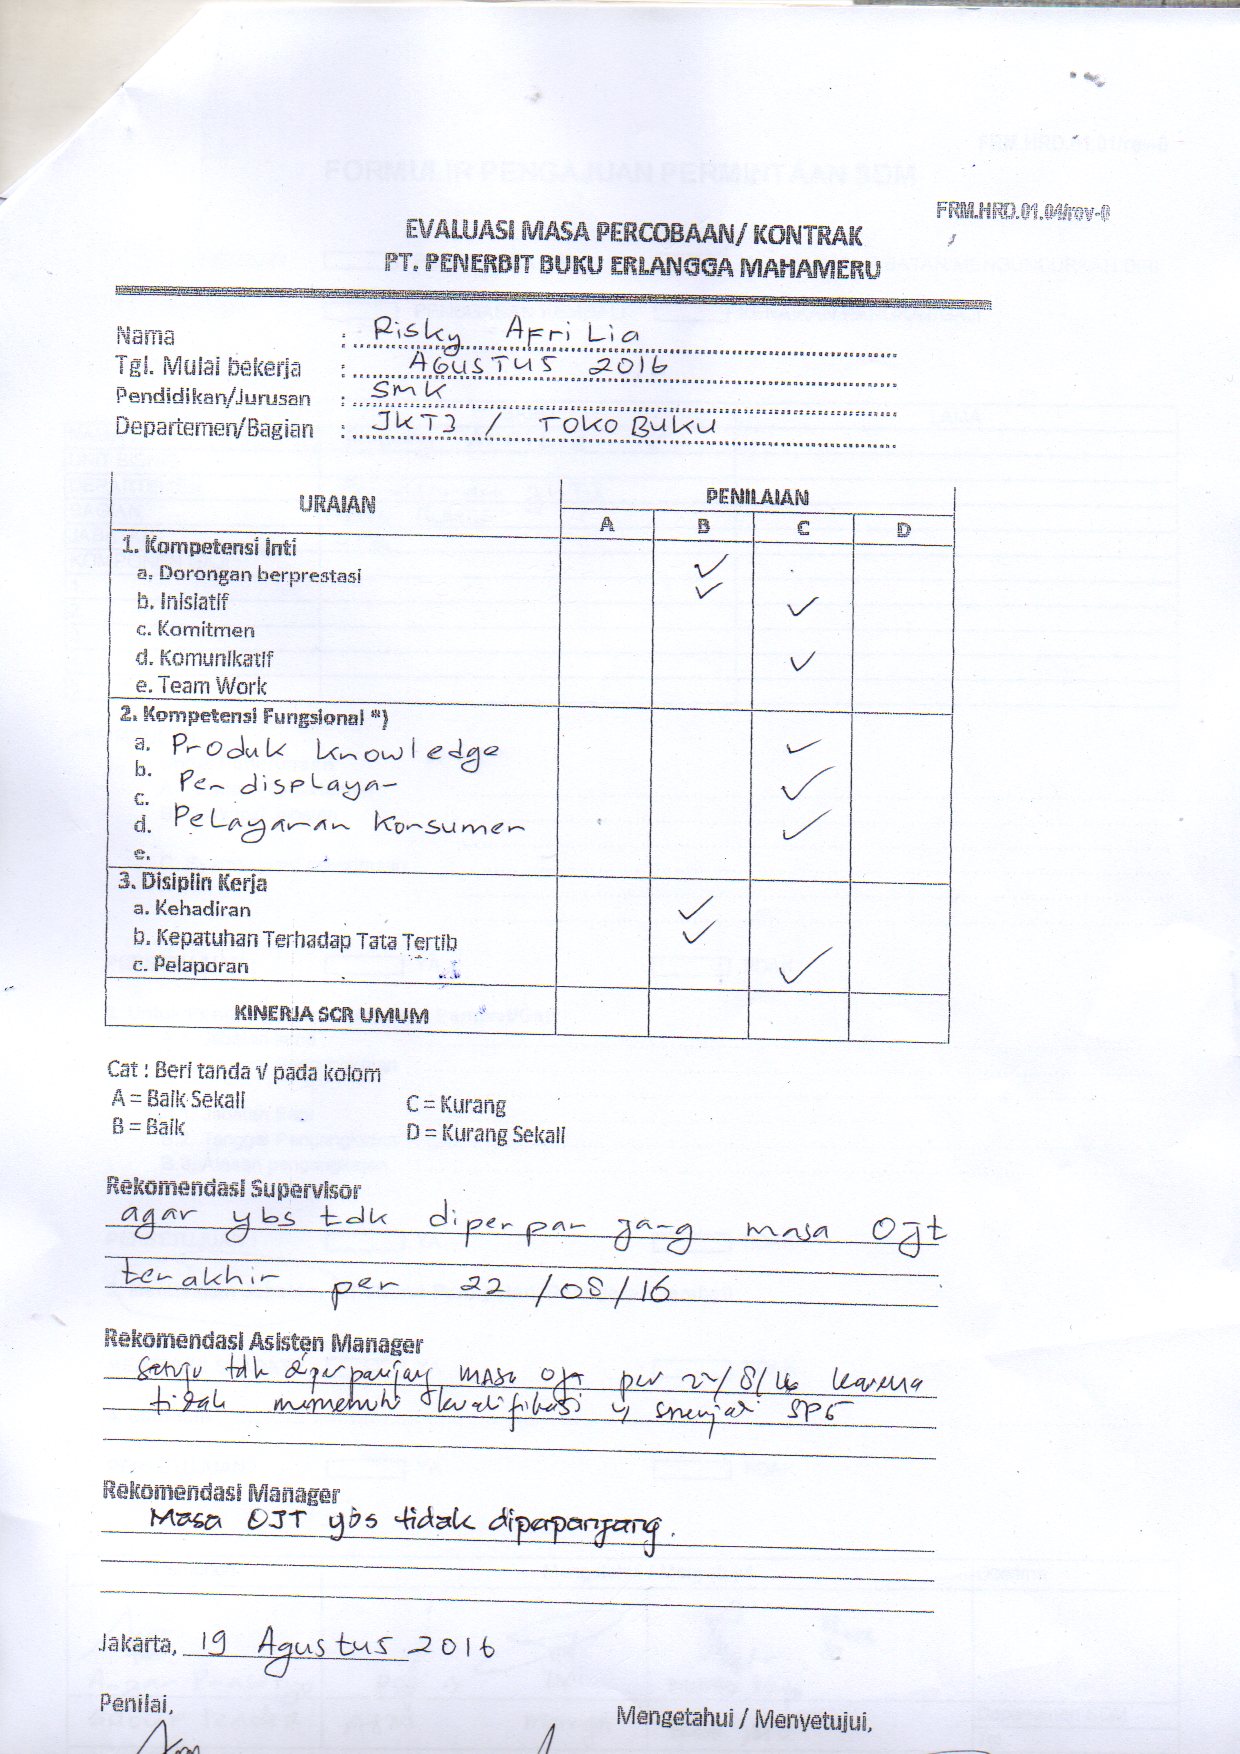 FRM.HRD.01.04/rov-0
EVALUASI MASA PERCOBAAN/ KONTRAK
PT. PENERBIT BUKU ERLANGGA MAHAMERU
Nama : Risky Afri Lia
Tgl. Mulai bekerja : AGUSTUS 2016
Pendidikan/Jurusan : SMK
Departemen/Bagian : JKT3 / TOKO BUKU
URAIAN PENILAIAN
A B C D
1. Kompetensi Inti
a. Dorongan berprestasi ✓
b. Inisiatif ✓ ✓
c. Komitmen
d. Komunikatif ✓
e. Team Work
2. Kompetensi Fungsional *)
a. Produk knowledge ✓
b. Pen displayan ✓
c.
d. Pelayanan Konsumen ✓
e.
3. Disiplin Kerja
a. Kehadiran ✓
b. Kepatuhan Terhadap Tata Tertib ✓
c. Pelaporan ✓
KINERJA SCR UMUM
Cat : Beri tanda √ pada kolom
A = Baik Sekali C = Kurang
B = Baik D = Kurang Sekali
Rekomendasi Supervisor
agar ybs tdk diperpanjang masa OJT
terakhir per 22/08/16
Rekomendasi Asisten Manager
Setuju tdk diperpanjang masa OJT per 22/8/16 karena
tidak memenuhi kualifikasi menjadi SPG
Rekomendasi Manager
Masa OJT ybs tidak diperpanjang.
Jakarta, 19 Agustus 2016
Penilai, Mengetahui / Menyetujui,